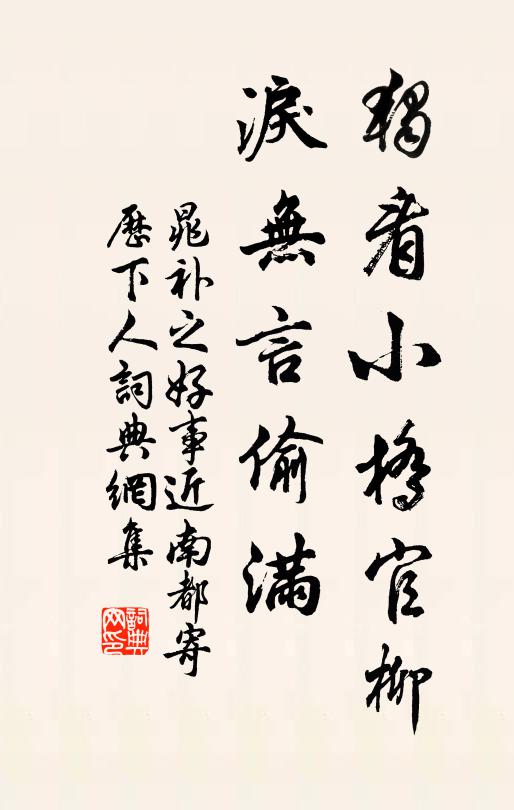 獨看小橋官柳
淚無言偷滿
晁补之好事近南都寄
歷下人詞典網集
詞典
网印